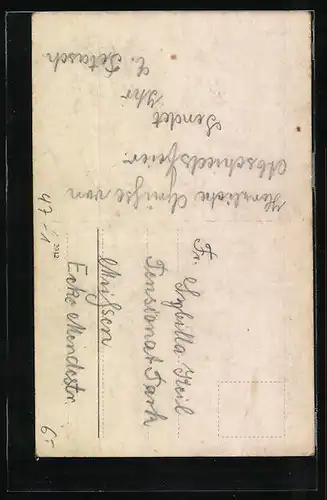 Herzliche Grüße von
Abschiedsfeier
Sendet
Ihr
E. Petasch
Fr. Sybilla Keil
Pensionat Park
Meißen
Ecke Mendestr.
2012
47-1
6-